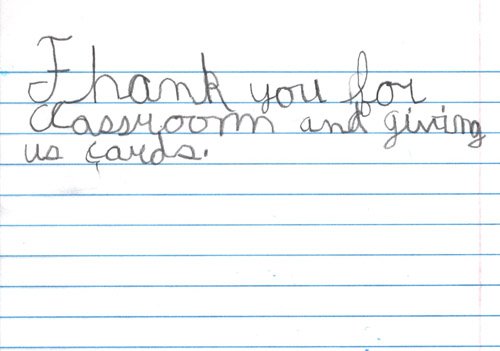 Thank you for
classroom and giving
us cards.